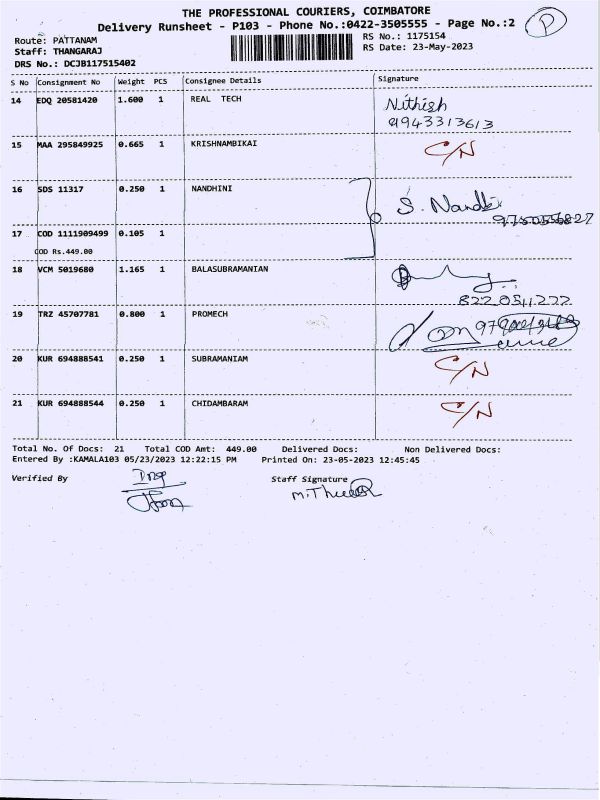 THE PROFESSIONAL COURIERS, COIMBATORE
Delivery Runsheet - P103 - Phone No.:0422-3505555 - Page No.:2
P
Route: PATTANAM
RS No.: 1175154
Staff: THANGARAJ
RS Date: 23-May-2023
DRS No.: DCJB117515402
S No Consignment No Weight PCS Consignee Details Signature
14 EDQ 20581420 1.600 1 REAL TECH Nithish
9943313613
15 MAA 295849925 0.665 1 KRISHNAMBIKAI C/N
16 SDS 11317 0.250 1 NANDHINI S. Nandhi
9750556827
17 COD 1111909499 0.105 1
COD Rs.449.00
18 VCM 5019680 1.165 1 BALASUBRAMANIAN
8220511222
19 TRZ 45707781 0.800 1 PROMECH
20 KUR 694888541 0.250 1 SUBRAMANIAM C/N
21 KUR 694888544 0.250 1 CHIDAMBARAM C/N
Total No. Of Docs: 21 Total COD Amt: 449.00 Delivered Docs: Non Delivered Docs:
Entered By :KAMALA103 05/23/2023 12:22:15 PM Printed On: 23-05-2023 12:45:45
Verified By Staff Signature